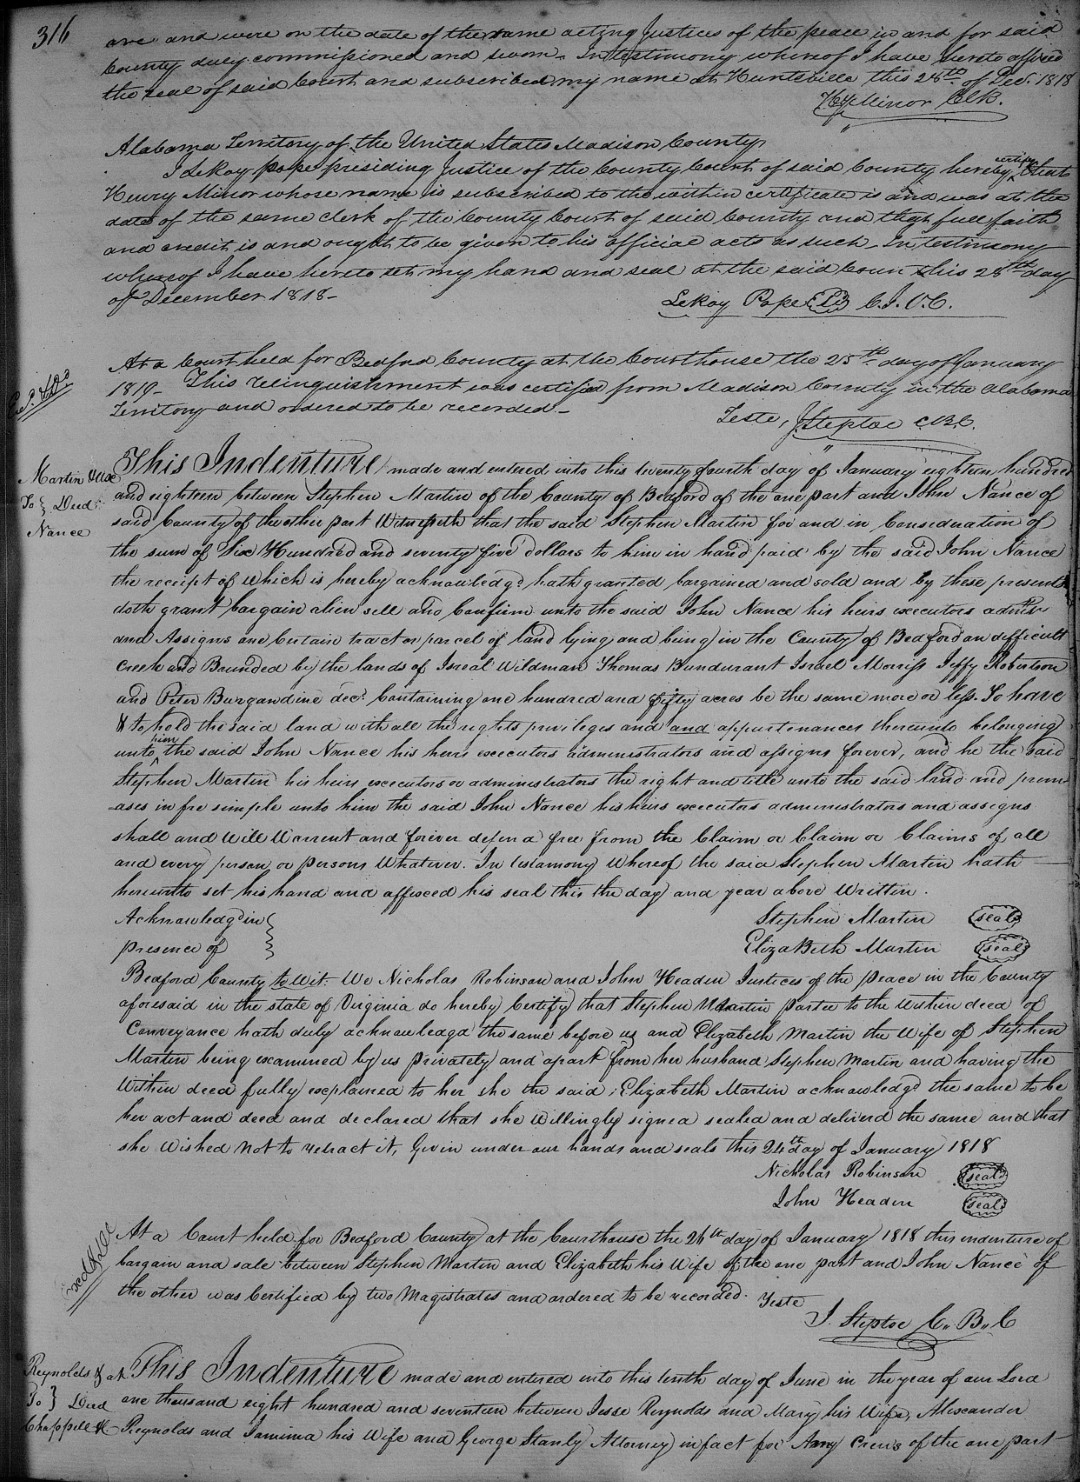 316
are and were on the date of the same acting Justices of the peace in and for said
County duly commissioned and sworn. In testimony whereof I have hereto affixed
the seal of said Court and subscribed my name at Huntsville this 28th of Dec. 1818
Hy Minor Clk.
Alabama Territory of the United States Madison County
I LeRoy Pope presiding Justice of the County Court of said County hereby certify that
Henry Minor whose name is subscribed to the within certificate is and was at the
date of the same clerk of the County Court of said County and that full faith
and credit is and ought to be given to his official acts as such. In testimony
whereof I have hereto set my hand and seal at the said Court this 28th day
of December 1818-
LeRoy Pope C.J.C.C.
At a Court held for Bedford County at the Courthouse the 25th day of January
1819- This relinquishment was certified from Madison County in the Alabama
Territory and ordered to be recorded-
Teste, J Steptoe C.B.C.
Martin &ux
To } Deed
Nance
This Indenture made and entered into this twenty fourth day of January eighteen hundred
and eighteen between Stephen Martin of the County of Bedford of the one part and John Nance of
said County of the other part Witnesseth that the said Stephen Martin for and in Consideration of
the sum of Six Hundred and seventy five dollars to him in hand paid by the said John Nance
the receipt of which is hereby acknowledgd hath granted bargained and sold and by these presents
doth grant, bargain alien sell and Confirm unto the said John Nance his heirs executors admrs
and Assigns one Certain tract or parcel of land lying and being in the County of Bedford on difficult
Creek and Bounded by the lands of Isreal Wildman Thomas Bundurant Israel Morriss Jeffy Robertson
and Peter Burgandine decd. Containing one hundred and fifty acres be the same more or less. To have
& to hold the said land with all the rights priveleges and and appurtenances thereunto belonging
unto him the said John Nance his heirs executors administrators and assigns forever, and he the said
Stephen Martin his heirs executors or administrators the right and title unto the said land and prem
-ases in fee simple unto him the said John Nance his heirs executors administrators and assigns
shall and will Warrent and forever defend free from the Claim or Claim or Claims of all
and every person or persons Whatever. In testamony Whereof the said Stephen Martin hath
hereunto set his hand and affixed his seal this the day and year above Written.
Acknowledgd in
presence of
Stephen Martin seal
Elizabeth Martin seal
Bedford County to Wit. We Nicholas Robinson and John Headen Justices of the Peace in the County
aforesaid in the state of Virginia do hereby Certify that Stephen Martin partee to the Within deed of
Conveyance hath duly acknowledgd the same before us and Elizabeth Martin the Wife of Stephen
Martin being examined by us privately and apart from her husband Stephen Martin and having the
Within deed fully explained to her she the said Elizabeth Martin acknowledgd the same to be
her act and deed and declared that she Willingly signed sealed and deliverd the same and that
she Wished not to retract it, Given under our hands and seals this 24th day of January 1818
Nicholas Robinson seal
John Headen seal
At a Court held for Bedford County at the Courthouse the 26th day of January 1818 this indenture of
bargain and sale between Stephen Martin and Elizabeth his Wife of the one part and John Nance of
the other was Certified by two Magistrates and ordered to be recorded. Teste
J. Steptoe C. B. C
Reynolds & al
To } Deed
Chappell
This Indenture made and entered into this tenth day of June in the year of our Lord
one thousand eight hundred and seventeen between Jesse Reynolds and Mary his Wife, Alexander
Reynolds and Jamima his Wife and George Stanly Attorney in fact for Amy Crews of the one part